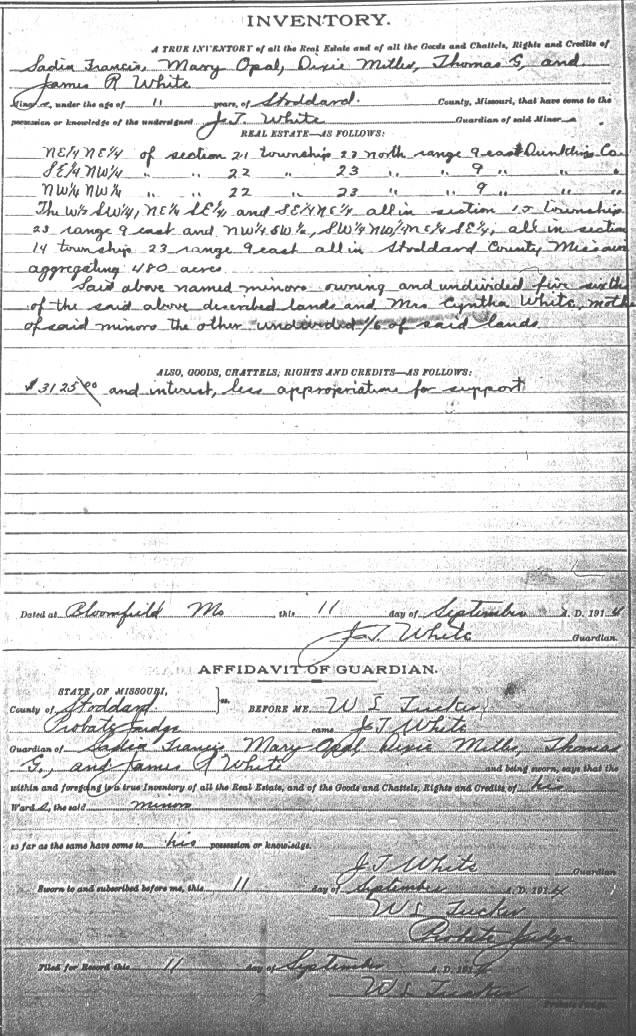 INVENTORY.
A TRUE INVENTORY of all the Real Estate and of all the Goods and Chattels, Rights and Credits of
Sadia Francis, Mary Opal, Dixie Mills, Thomas G, and
James R White
under the age of 11 years, of Stoddard County, Missouri, that have come to the
possession or knowledge of the undersigned J. T. White Guardian of said Minor s
REAL ESTATE—AS FOLLOWS:
NE¼ NE¼ of section 21 township 23 north range 9 east Dunklin Co
SE¼ NW¼ " " 22 " 23 " " 9 " " "
NW¼ NW¼ " " 22 " 23 " 9 " " "
The W½ SW¼, NE¼ SE¼ and SE¼ NE¼ all in section 15 township
23 range 9 east and NW¼ SW½, SW¼ NW¼ NE¼ SE¼, all in section
14 township 23 range 9 east all in Stoddard County Missouri
aggregating 480 acres.
Said above named minors owning and undivided five sixths
of the said above described lands and Mrs Cyntha White, mothe
of said minors the other undivided 1/6 of said lands
ALSO, GOODS, CHATTELS, RIGHTS AND CREDITS—AS FOLLOWS:
$3125 00 and interest, less appropriations for support
Dated at Bloomfield Mo this 11 day of September A. D. 1914
J. T. White Guardian.
AFFIDAVIT OF GUARDIAN.
STATE OF MISSOURI,
County of Stoddard ss. BEFORE ME, W S Tucker,
Probate Judge came J T White
Guardian of Sadia Francis Mary Opal Dixie Mills, Thomas
G., and James R White and being sworn, says that the
within and foregoing is a true Inventory of all the Real Estate, and of the Goods and Chattels, Rights and Credits of his
Ward s, the said minors
so far as the same have come to his possession or knowledge.
J T White Guardian
Sworn to and subscribed before me, this 11 day of September A. D. 1914
W S Tucker
Probate Judge
Filed for Record this 11 day of September A. D. 1914
W S Tucker
Probate Judge.